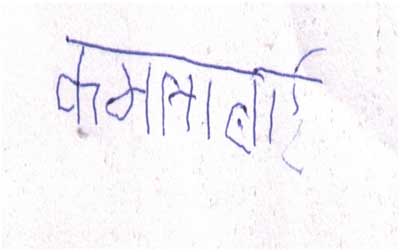 कमलाबाई